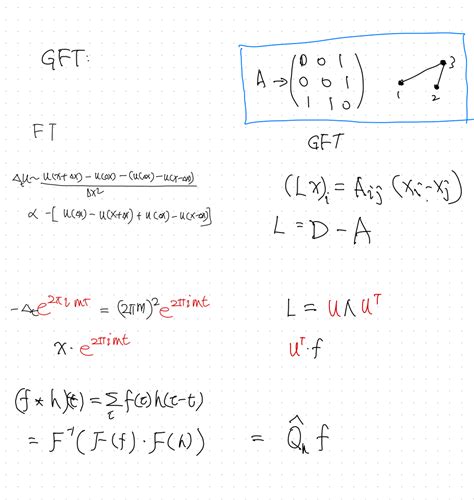 GFT:
A → ( 0 0 1
0 0 1
1 1 0 )
1 2 3
FT
GFT
Δu ~ u(x+Δx) - u(x) - (u(x) - u(x-Δx)) / Δx²
∝ -[ u(x) - u(x+Δx) + u(x) - u(x-Δx) ]
(Lx)ᵢ = Aᵢⱼ (xᵢ - xⱼ)
L = D - A
-Δₜ e^{2πimt} = (2πm)² e^{2πimt}
L = U Λ Uᵀ
x · e^{2πimt}
Uᵀ · f
(f * h)(t) = Σ_τ f(τ) h(τ-t)
= F⁻¹ ( F(f) · F(h) ) = Q̂ₕ f